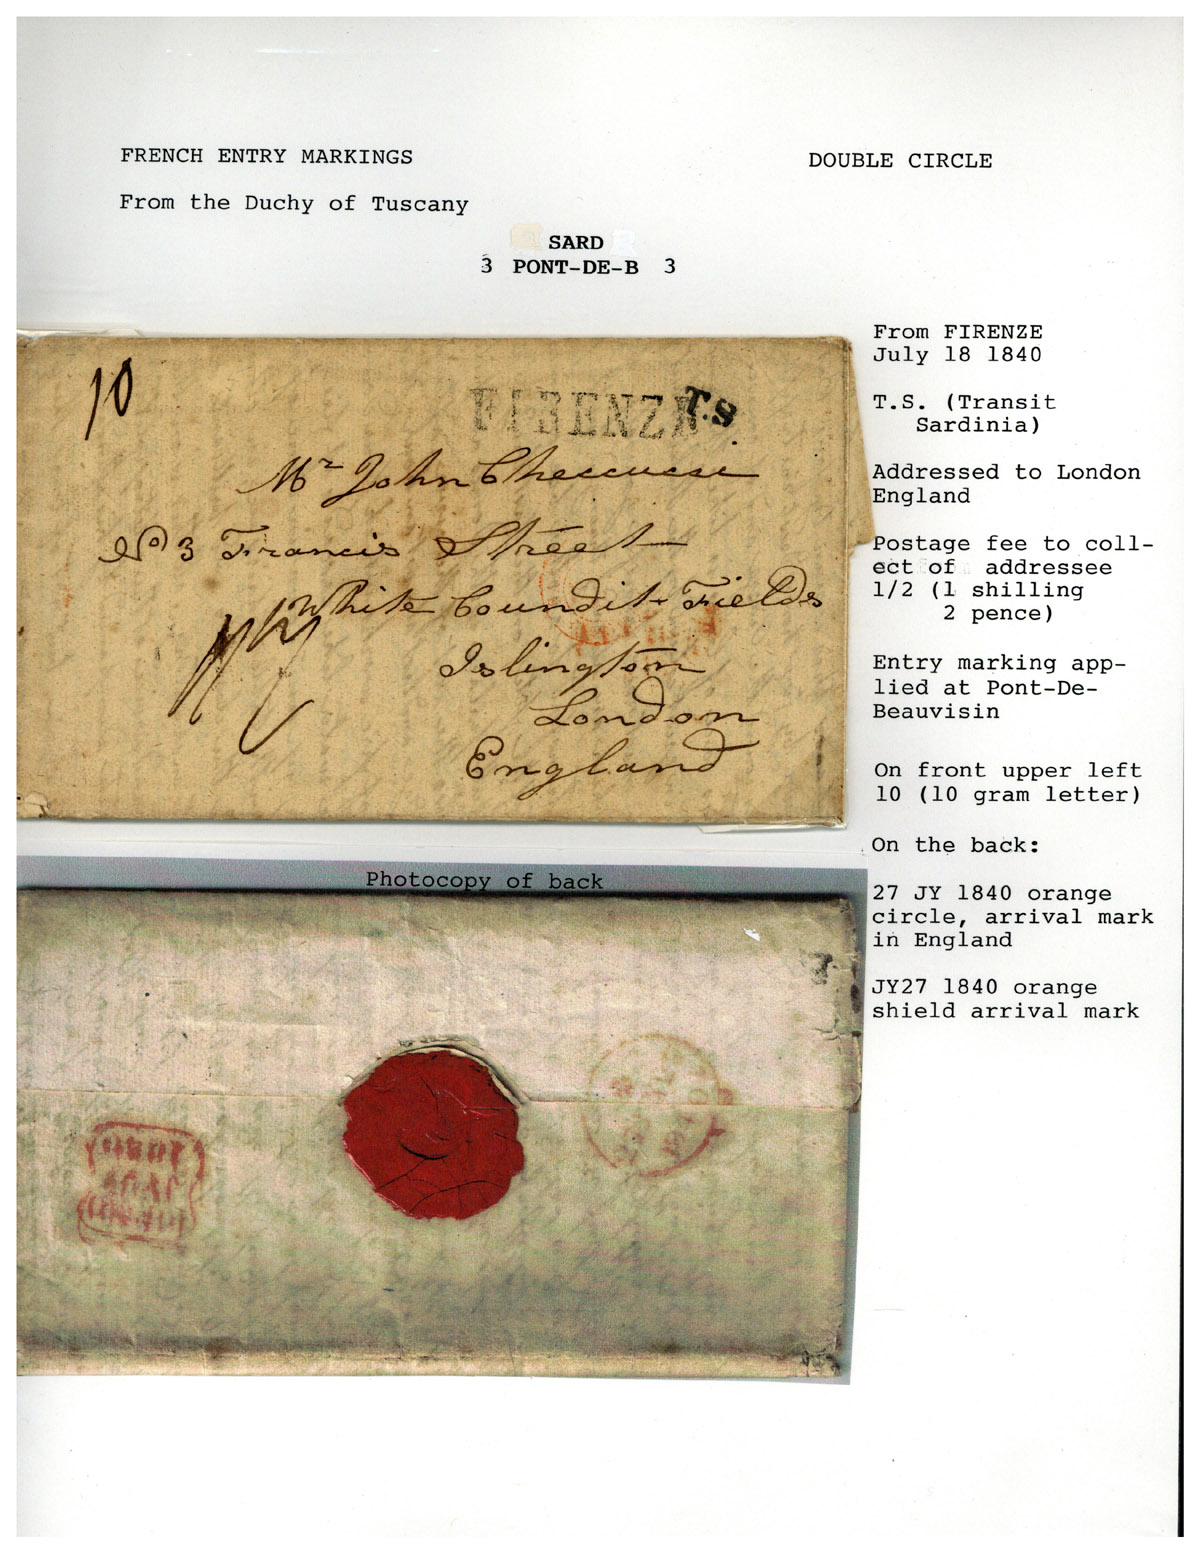 FRENCH ENTRY MARKINGS
DOUBLE CIRCLE
From the Duchy of Tuscany
SARD
3 PONT-DE-B 3
10
FIRENZE
T.S
Mr John
No 3 Francis Street
White Coundit Fields
Islington
London
England
1/2
From FIRENZE
July 18 1840
T.S. (Transit
Sardinia)
Addressed to London
England
Postage fee to coll-
ect of addressee
1/2 (1 shilling
2 pence)
Entry marking app-
lied at Pont-De-
Beauvisin
On front upper left
10 (10 gram letter)
On the back:
27 JY 1840 orange
circle, arrival mark
in England
JY27 1840 orange
shield arrival mark
Photocopy of back
1840